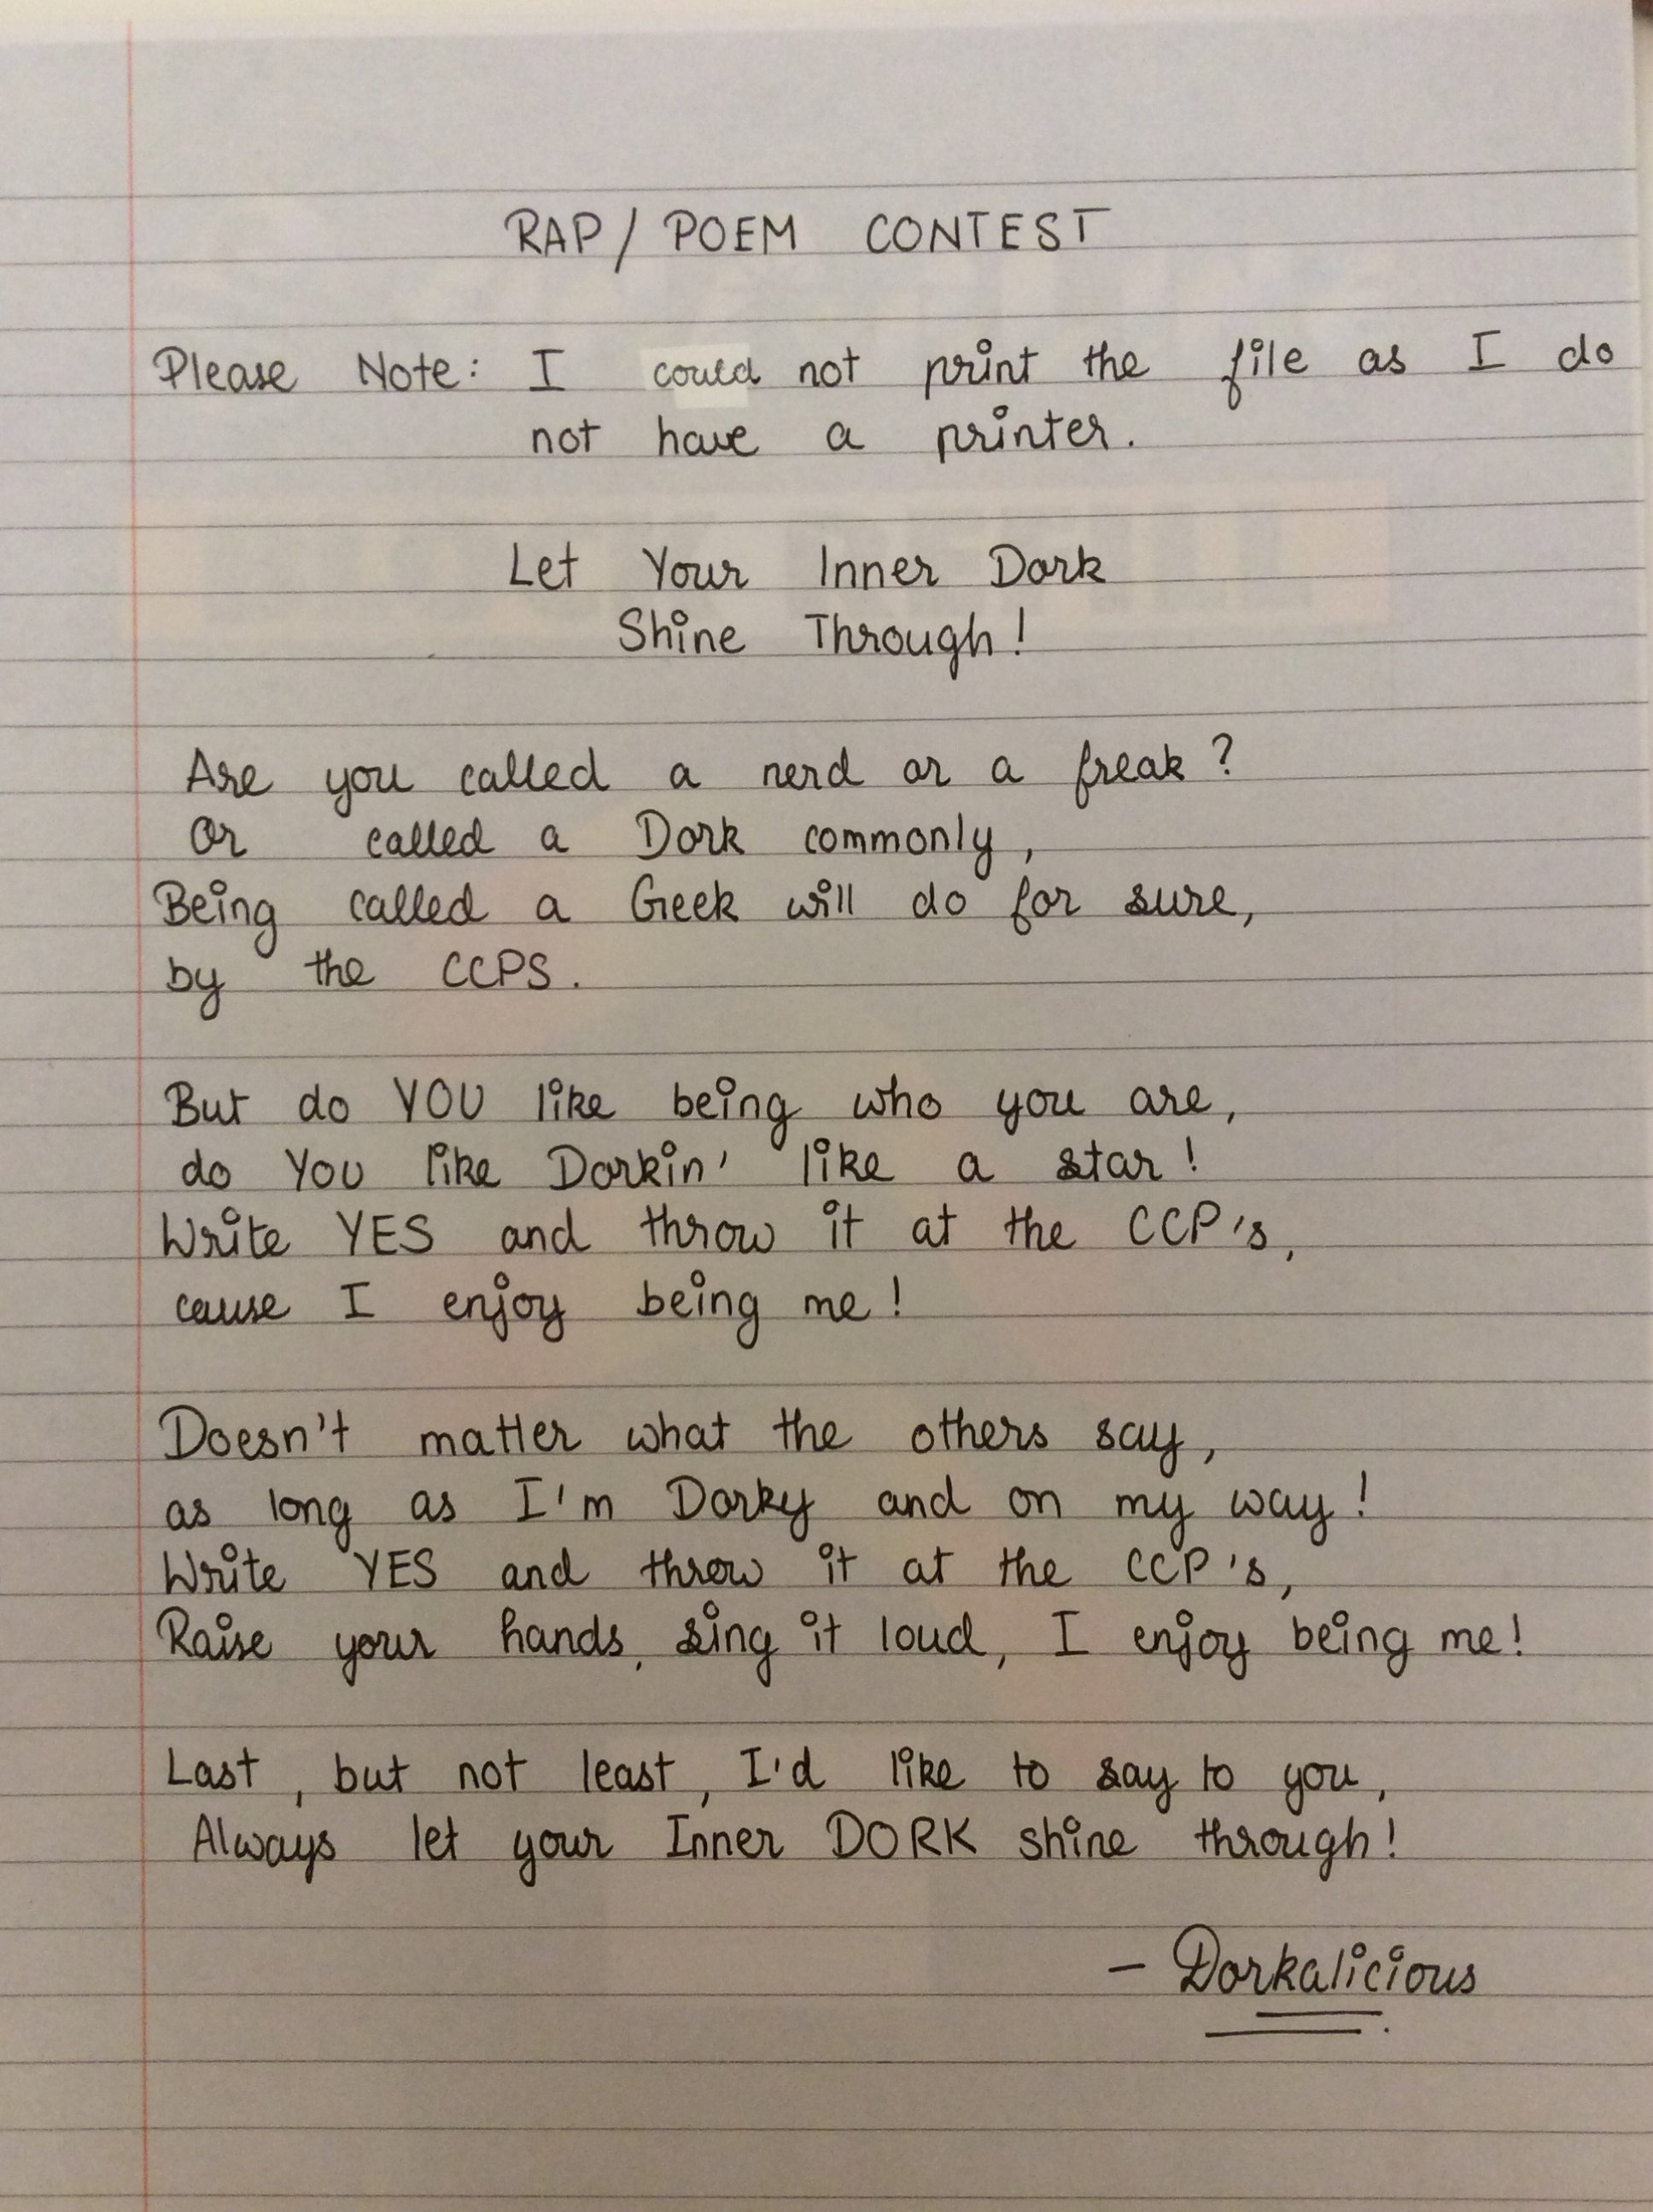 RAP / POEM CONTEST
Please Note: I could not print the file as I do
not have a printer.
Let Your Inner Dork
Shine Through!
Are you called a nerd or a freak?
Or called a Dork commonly,
Being called a Geek will do for sure,
by the CCPS.
But do YOU like being who you are,
do YOU like Dorkin' like a star!
Write YES and throw it at the CCP's,
cause I enjoy being me!
Doesn't matter what the others say,
as long as I'm Dorky and on my way!
Write YES and throw it at the CCP's,
Raise your hands, sing it loud, I enjoy being me!
Last, but not least, I'd like to say to you,
Always let your Inner DORK shine through!
– Dorkalicious